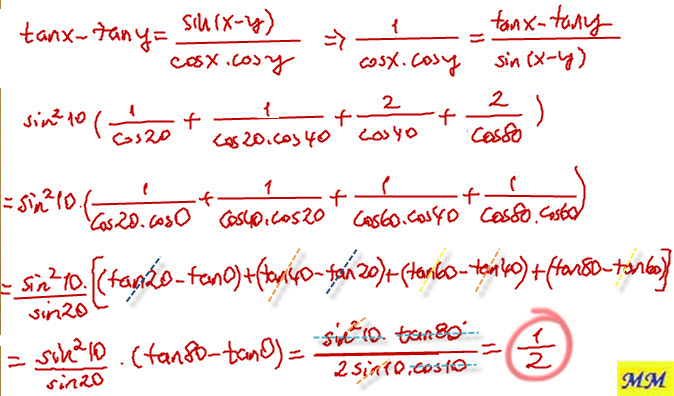 tanx - tany = sin(x-y) / cosx.cosy ⇒ 1 / cosx.cosy = tanx - tany / sin(x-y)
sin²10 ( 1/cos20 + 1/cos20.cos40 + 2/cos40 + 2/cos80 )
= sin²10.( 1/cos20.cos0 + 1/cos40.cos20 + 1/cos60.cos40 + 1/cos80.cos60 )
= sin²10./sin20 [(tan20 - tan0) + (tan40 - tan20) + (tan60 - tan40) + (tan80 - tan60)]
= sin²10/sin20 . (tan80 - tan0) = sin²10. tan80 / 2sin10.cos10 = 1/2
MM